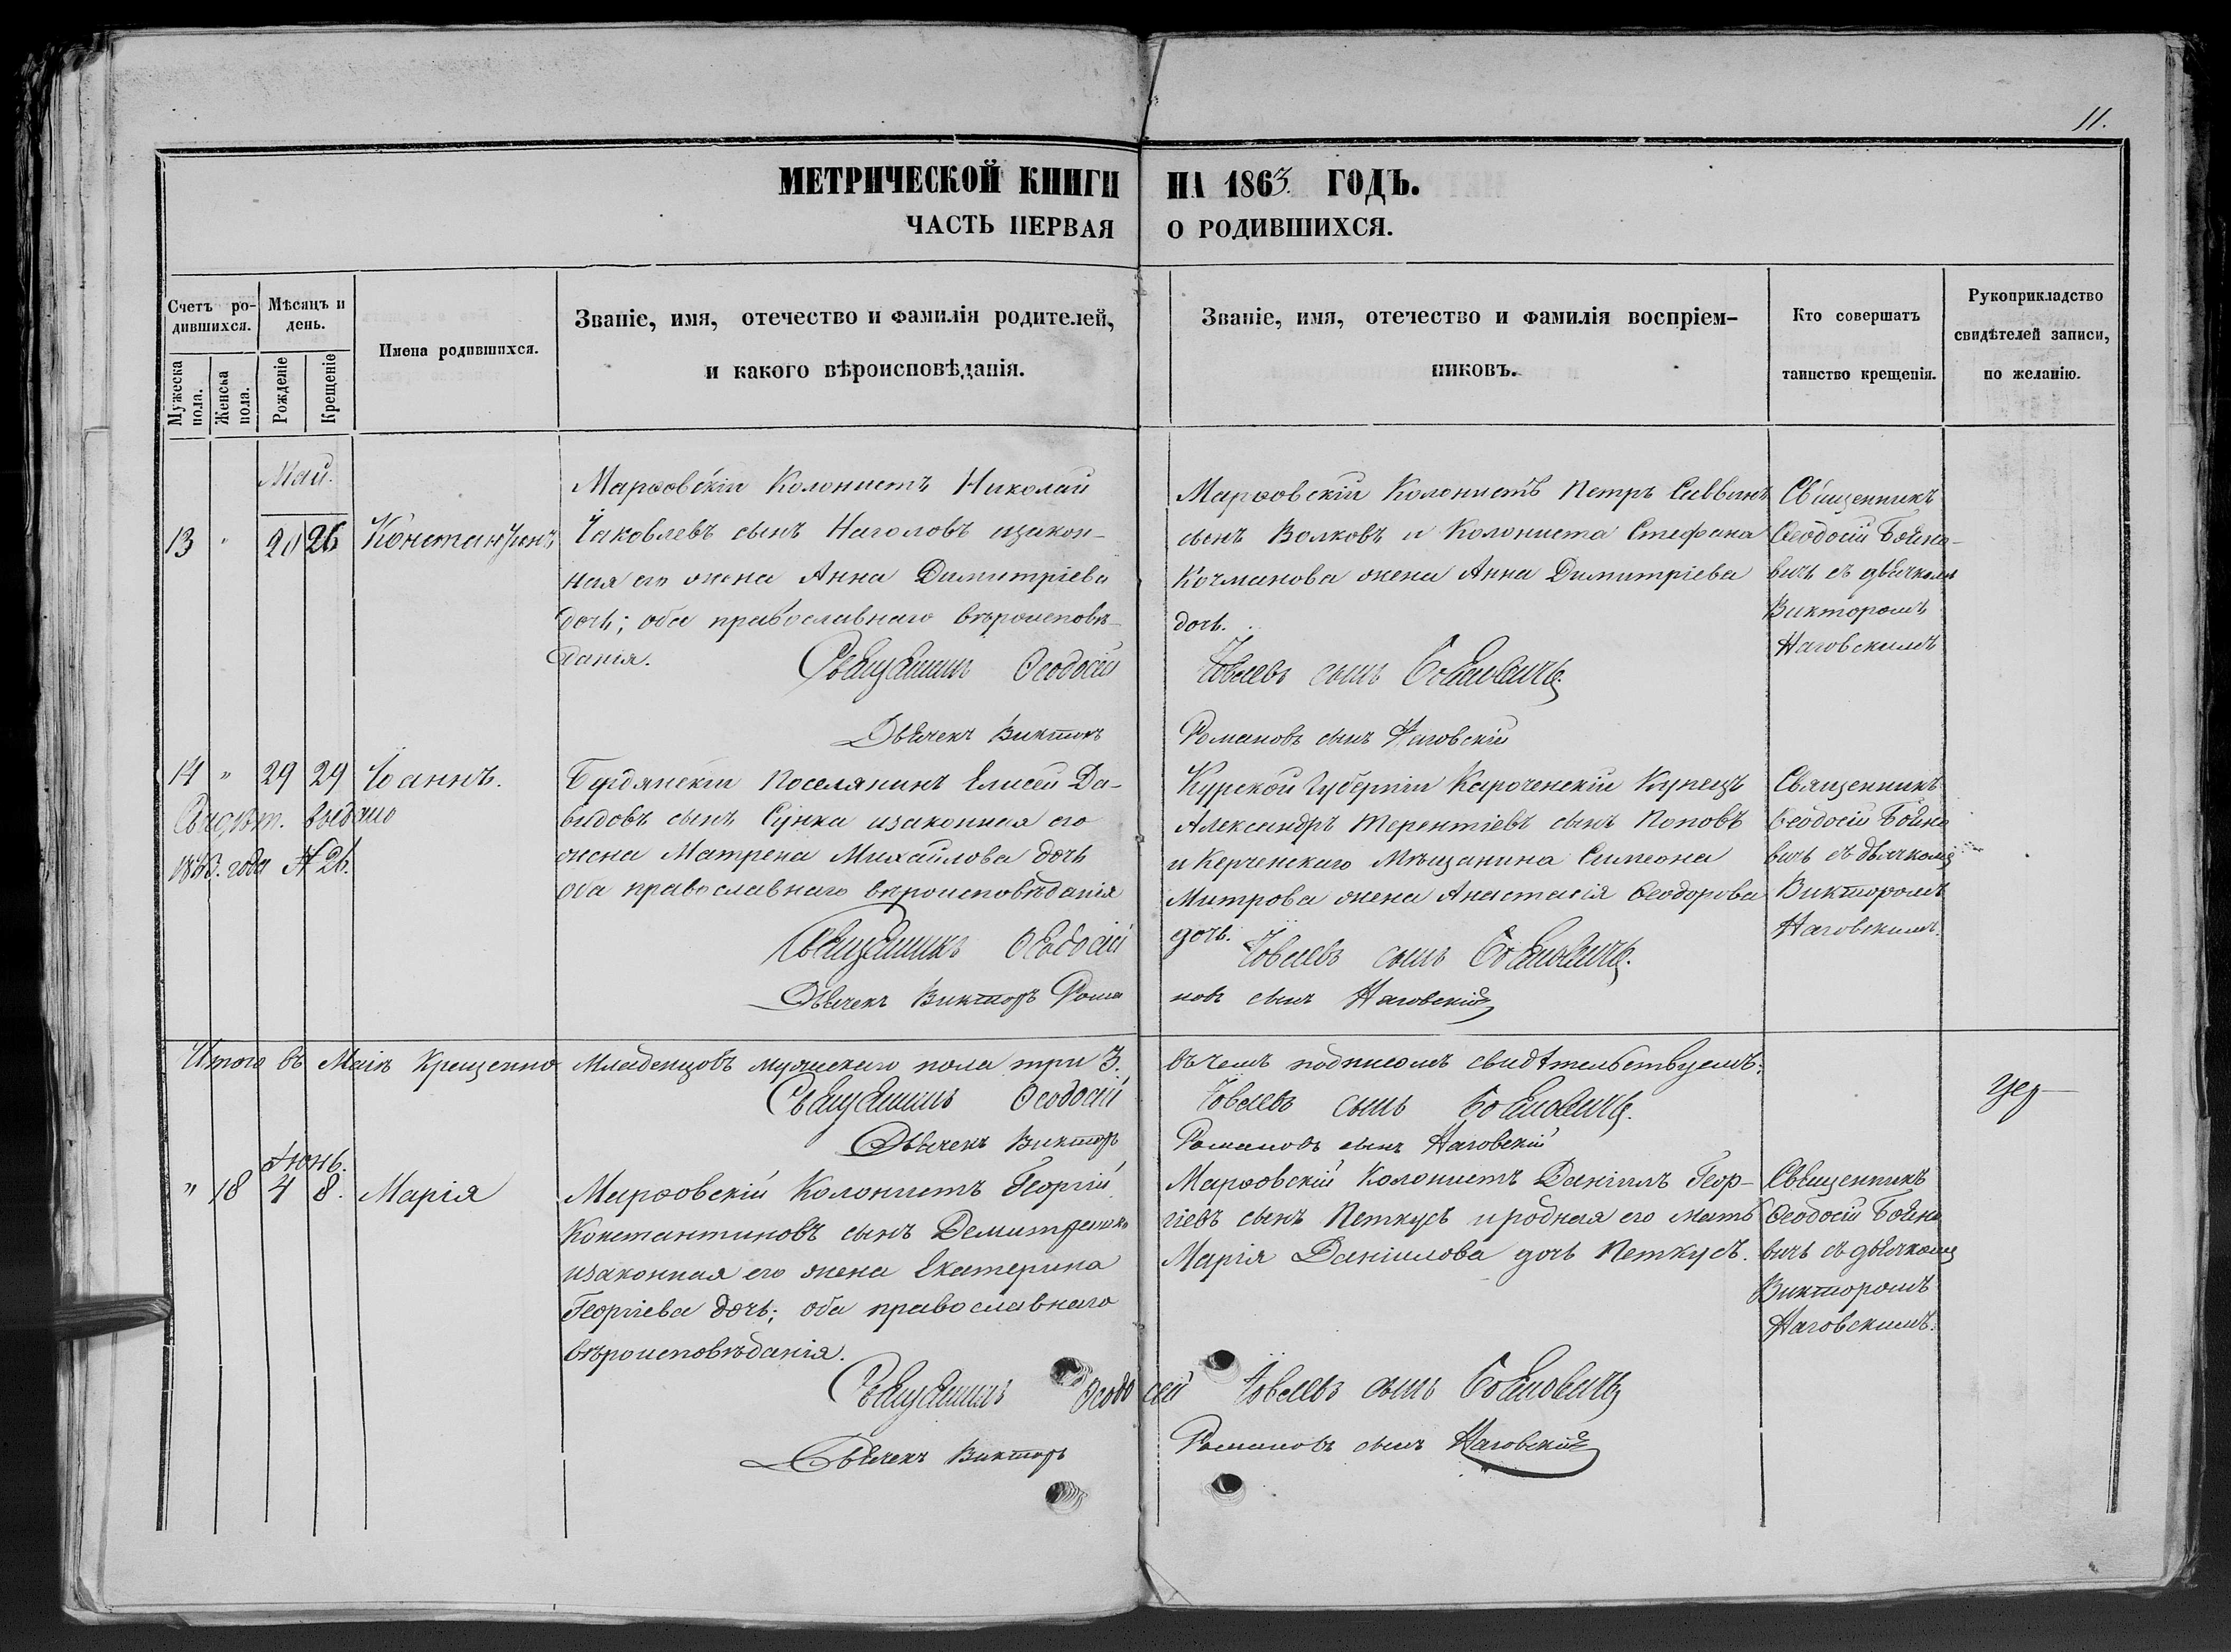 11.
МЕТРИЧЕСКОЙ КНИГИ НА 1863 ГОДЪ.
ЧАСТЬ ПЕРВАЯ О РОДИВШИХСЯ.
Счетъ ро-
дившихся.
Мужеска пола.
Женска пола.
Мѣсяцъ и
день.
Рожденіе
Крещеніе
Имена родившихся.
Званіе, имя, отечество и фамилія родителей,
и какого вѣроисповѣданія.
Званіе, имя, отечество и фамилія воспріем-
никовъ.
Кто совершатъ
таинство крещенія.
Рукоприкладство
свидѣтелей записи,
по желанію.
Май.
13 " 20 26 Константинъ
Марѳовскій Колонистъ Николай
Іаковлевъ сынъ Наголовъ изакон-
ная его жена Анна Димитріева
дочь; оба православнаго вѣроисповѣ-
данія.
Марѳовскій Колонистъ Петръ Саввинъ
сынъ Волковъ и Колониста Стефана
Кочманова жена Анна Димитріева
дочь.
Священникъ
Ѳеодосій Бойно-
вичъ съ дьячкомъ
Викторомъ
Наговскимъ
Священникъ Ѳеодосій Іовлевъ сынъ Бойновичъ.
Дьячекъ Викторъ Романовъ сынъ Наговскій
14 " 29 29 Іоаннъ.
Свидѣт. выдано
года № 26.
Бердянскій Поселянинъ Елисей Да-
видовъ сынъ Сунка изаконная его
жена Матрена Михайлова дочь
оба православнаго вѣроисповѣданія
Курской Губерніи Короченскій Купецъ
Александръ Терентіевъ сынъ Поповъ
и Керченскаго Мѣщанина Симеона
Митрова жена Анастасія Ѳеодорова
дочь.
Священникъ
Ѳеодосій Бойно
вичъ съ дьячкомъ
Викторомъ
Наговскимъ.
Священникъ Ѳеодосій Іовлевъ сынъ Бойновичъ.
Дьячекъ Викторъ Романовъ сынъ Наговскій
Итого въ Маѣ Крещенно Младенцовъ мужескаго пола три 3. въ чемъ подписомъ свидѣтельствуемъ:
Священникъ Ѳеодосій Іовлевъ сынъ Бойновичъ.
Дьячекъ Викторъ Романовъ сынъ Наговскій
Іюнь.
" 18 4 8. Марія
Марѳовскій Колонистъ Георгій
Константиновъ сынъ
изаконная его жена Екатерина
Георгіева дочь; оба православнаго
вѣроисповѣданія.
Марѳовскій Колонистъ Даніилъ Геор-
гіевъ сынъ Петкусъ и родная его мать
Марія Даніилова дочь Петкусъ.
Священникъ
Ѳеодосій Бойно
вичъ съ дьячкомъ
Викторомъ
Наговскимъ.
Священникъ Ѳеодосій Іовлевъ сынъ Бойновичъ
Дьячекъ Викторъ Романовъ сынъ Наговскій